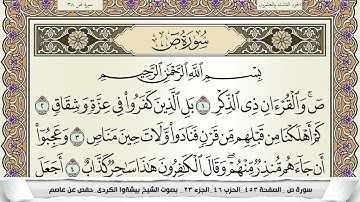 الجزء الثالث والعشرون
سورة ص ٣٨
سُورَةُ صٓ
بِسْمِ ٱللَّهِ ٱلرَّحْمَٰنِ ٱلرَّحِيمِ
صٓ ۚ وَٱلْقُرْءَانِ ذِى ٱلذِّكْرِ ١ بَلِ ٱلَّذِينَ كَفَرُوا۟ فِى عِزَّةٍ وَشِقَاقٍ ٢
كَمْ أَهْلَكْنَا مِن قَبْلِهِم مِّن قَرْنٍ فَنَادَوا۟ وَّلَاتَ حِينَ مَنَاصٍ ٣ وَعَجِبُوٓا۟
أَن جَآءَهُم مُّنذِرٌ مِّنْهُمْ ۖ وَقَالَ ٱلْكَٰفِرُونَ هَٰذَا سَٰحِرٌ كَذَّابٌ ٤ أَجَعَلَ
سورة ص _ الصفحة ٤٥٣ _ الحزب ٤٦ _ الجزء ٢٣ _ بصوت الشيخ بيشةوا الكردى _ حفص عن عاصم